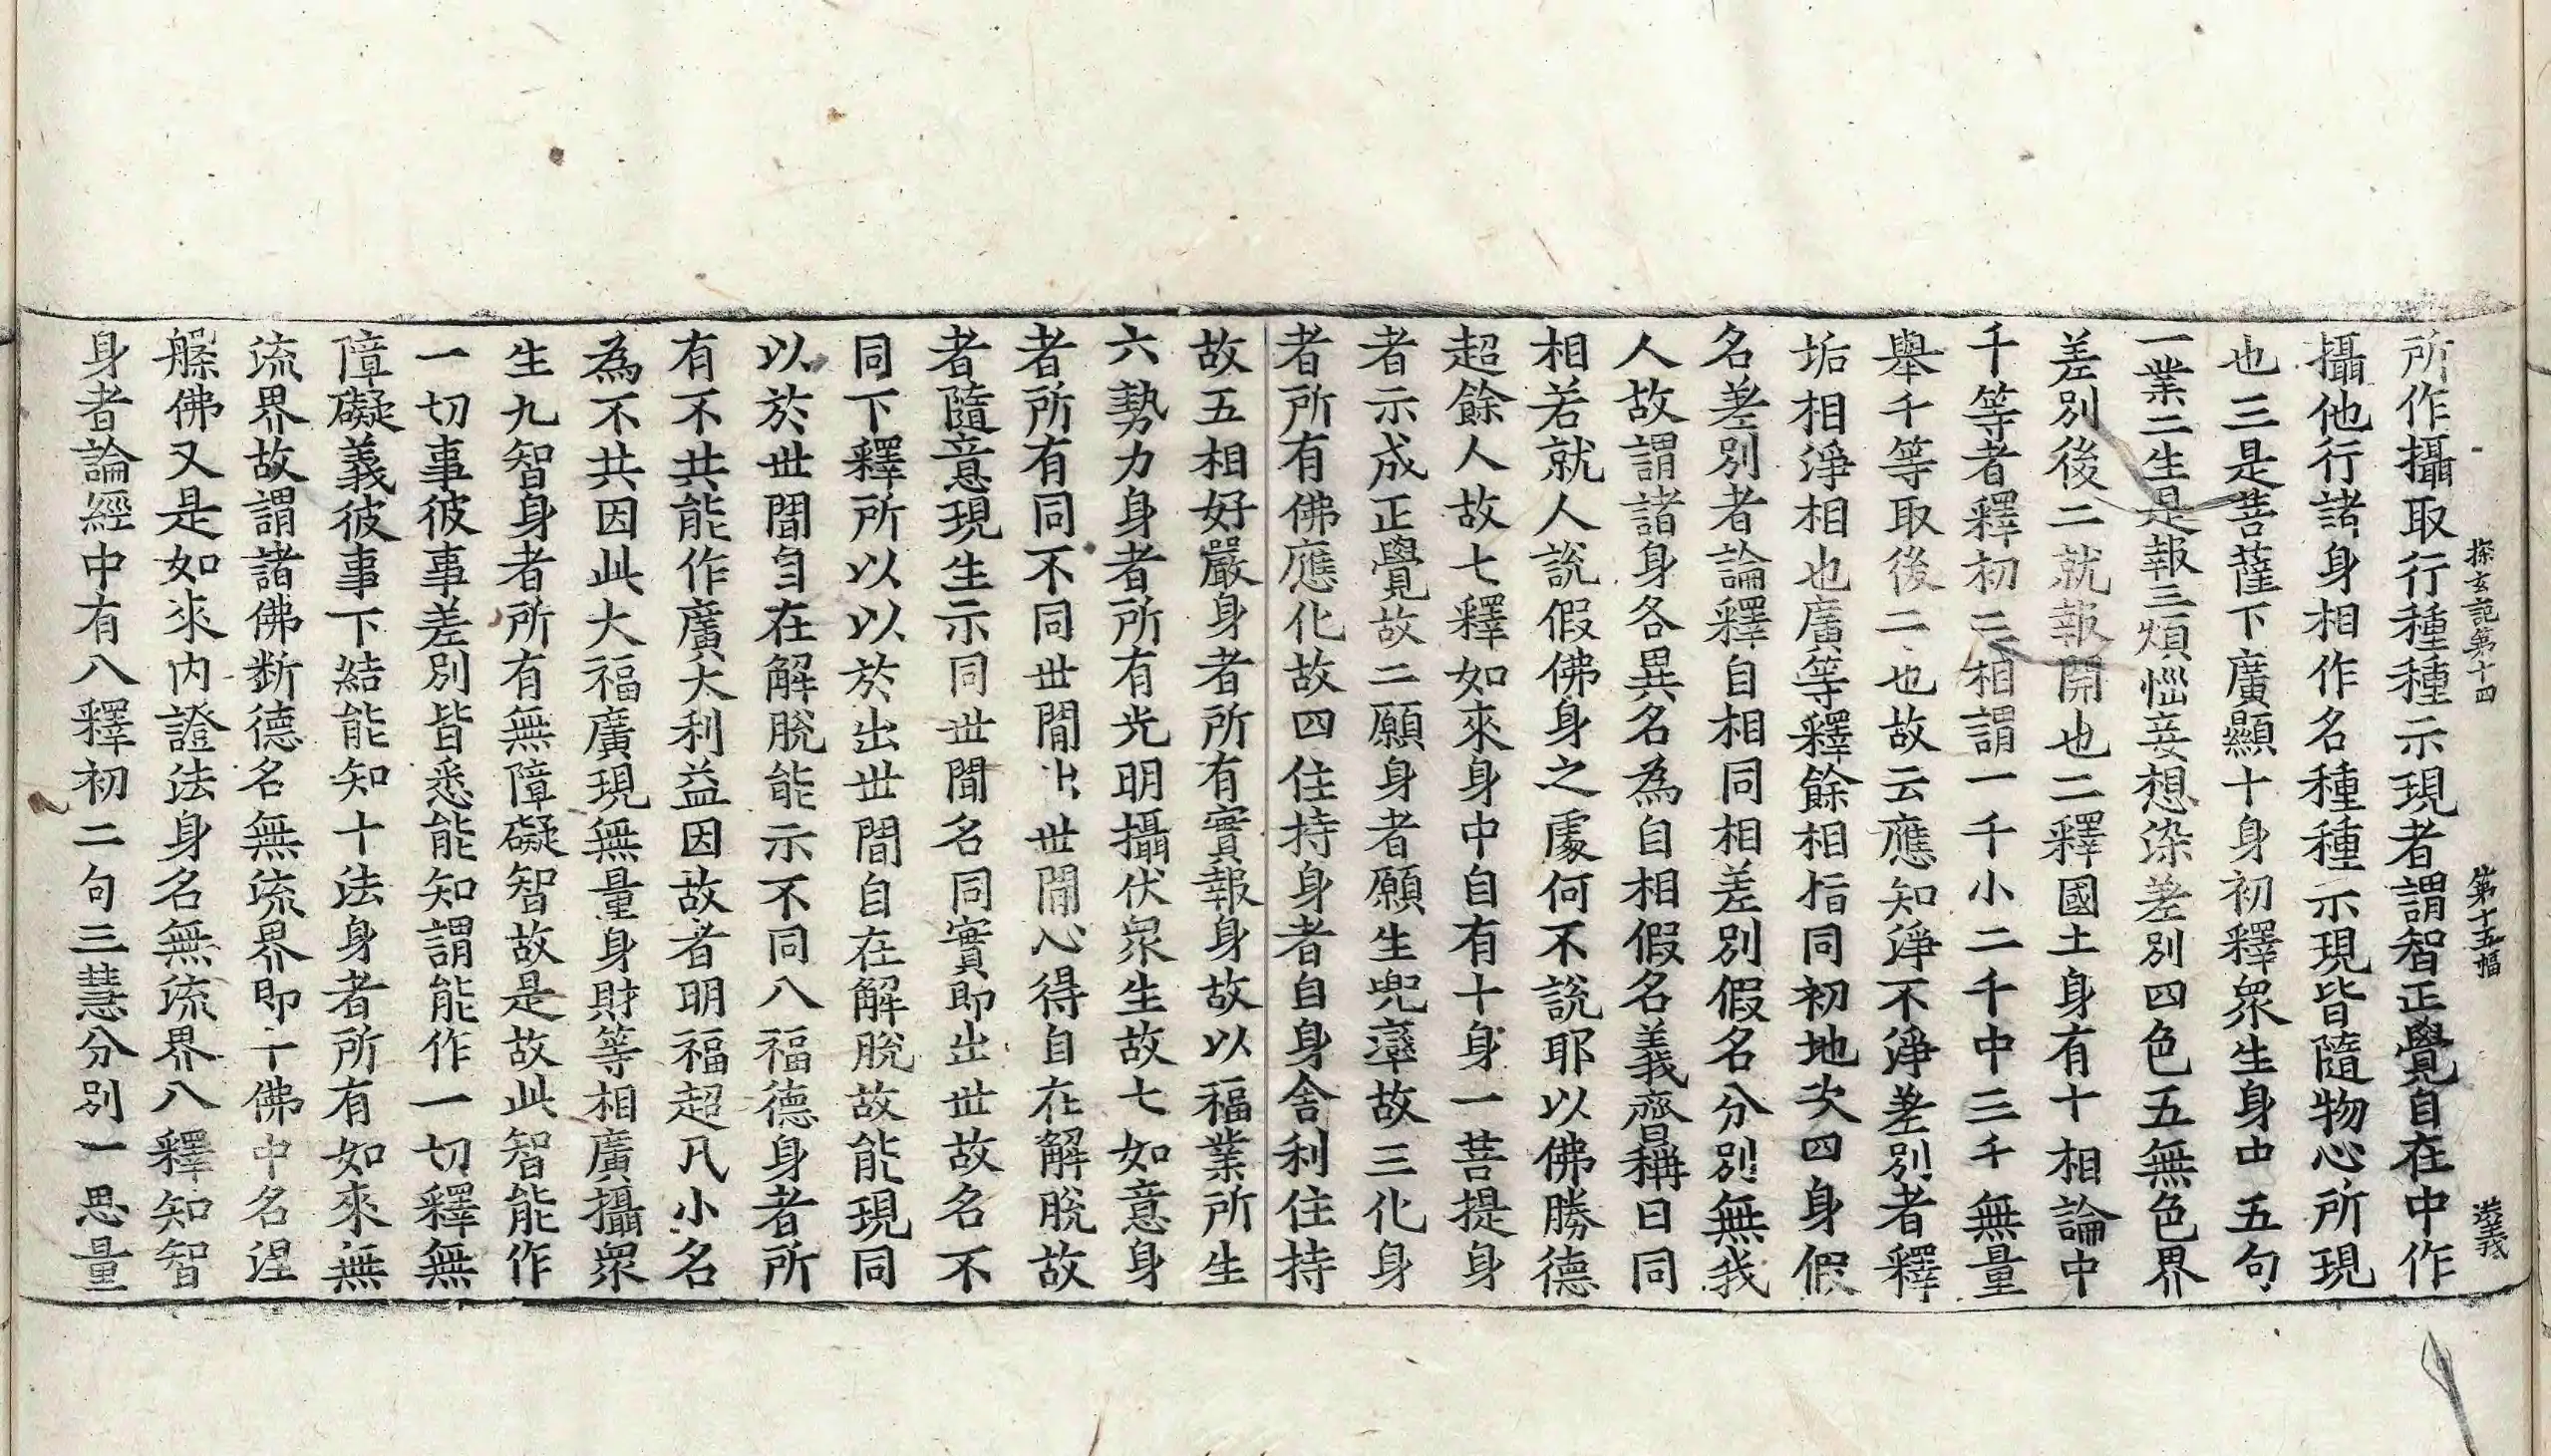 探玄記第十四 第十五幅 㳒義
所作攝取行種種示現者謂智正覺自在中作
攝他行諸身相作名種種示現皆隨物心所現
也三是菩薩下廣顯十身初釋衆生身中五句
一業二生是報三煩惱妄想染差別四色五無色界
差別後二就報開也二釋國土身有十相論中
千等者釋初三相謂一千小二千中三千無量
舉千等取後二也故云應知淨不淨差別者釋
垢相淨相也廣等釋餘相指同初地次四身假
名差別者論釋自相同相差別假名分別無我
人故謂諸身各異名為自相假名義齊稱曰同
相若就人說假佛身之處何不說耶以佛勝德
超餘人故七釋如來身中自有十身一菩提身
者示成正覺故二願身者願生兜率故三化身
者所有佛應化故四住持身者自身舍利住持
故五相好嚴身者所有實報身故以福業所生
六勢力身者所有光明攝伏衆生故七如意身
者所有同不同世間出世間心得自在解脫故
者隨意現生示同世間名同實即出世故名不
同下釋所以以於出世間自在解脫故能現同
以於世間自在解脫能示不同八福德身者所
有不共能作廣大利益因故者明福超凡小名
為不共因此大福廣現無量身財等相廣攝衆
生九智身者所有無障礙智故是故此智能作
一切事彼事差別皆悉能知謂能作一切釋無
障礙義彼事下結能知十法身者所有如來無
流界故謂諸佛斷德名無流界即十佛中名涅
槃佛又是如來內證法身名無流界八釋知智
身者論經中有八釋初二句三慧分別一思量